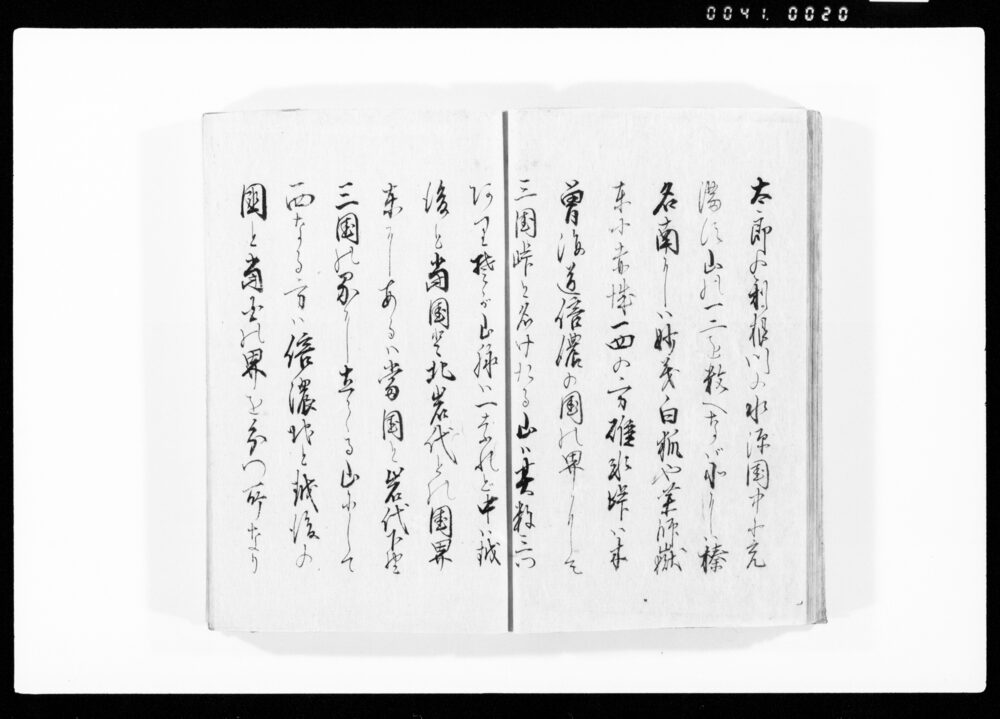 0041.0020
太郎の利根川の水源国中に充
満す山の一二を挙くれバ北にハ榛
名南にハ妙義白狐や薬師嶽
東に赤城西の方碓氷峠ハ木
曽海道信濃の国の界にして
三国峠と名けたる山ハ其数三つ
ありそが山脉ハ一なれど中ハ越
後と当国と北岩代との国界
東にあるハ当国と岩代下野
三国の界に立てる山にして
西なる方ハ信濃路と越後の
国と当国の界を分つ所なり